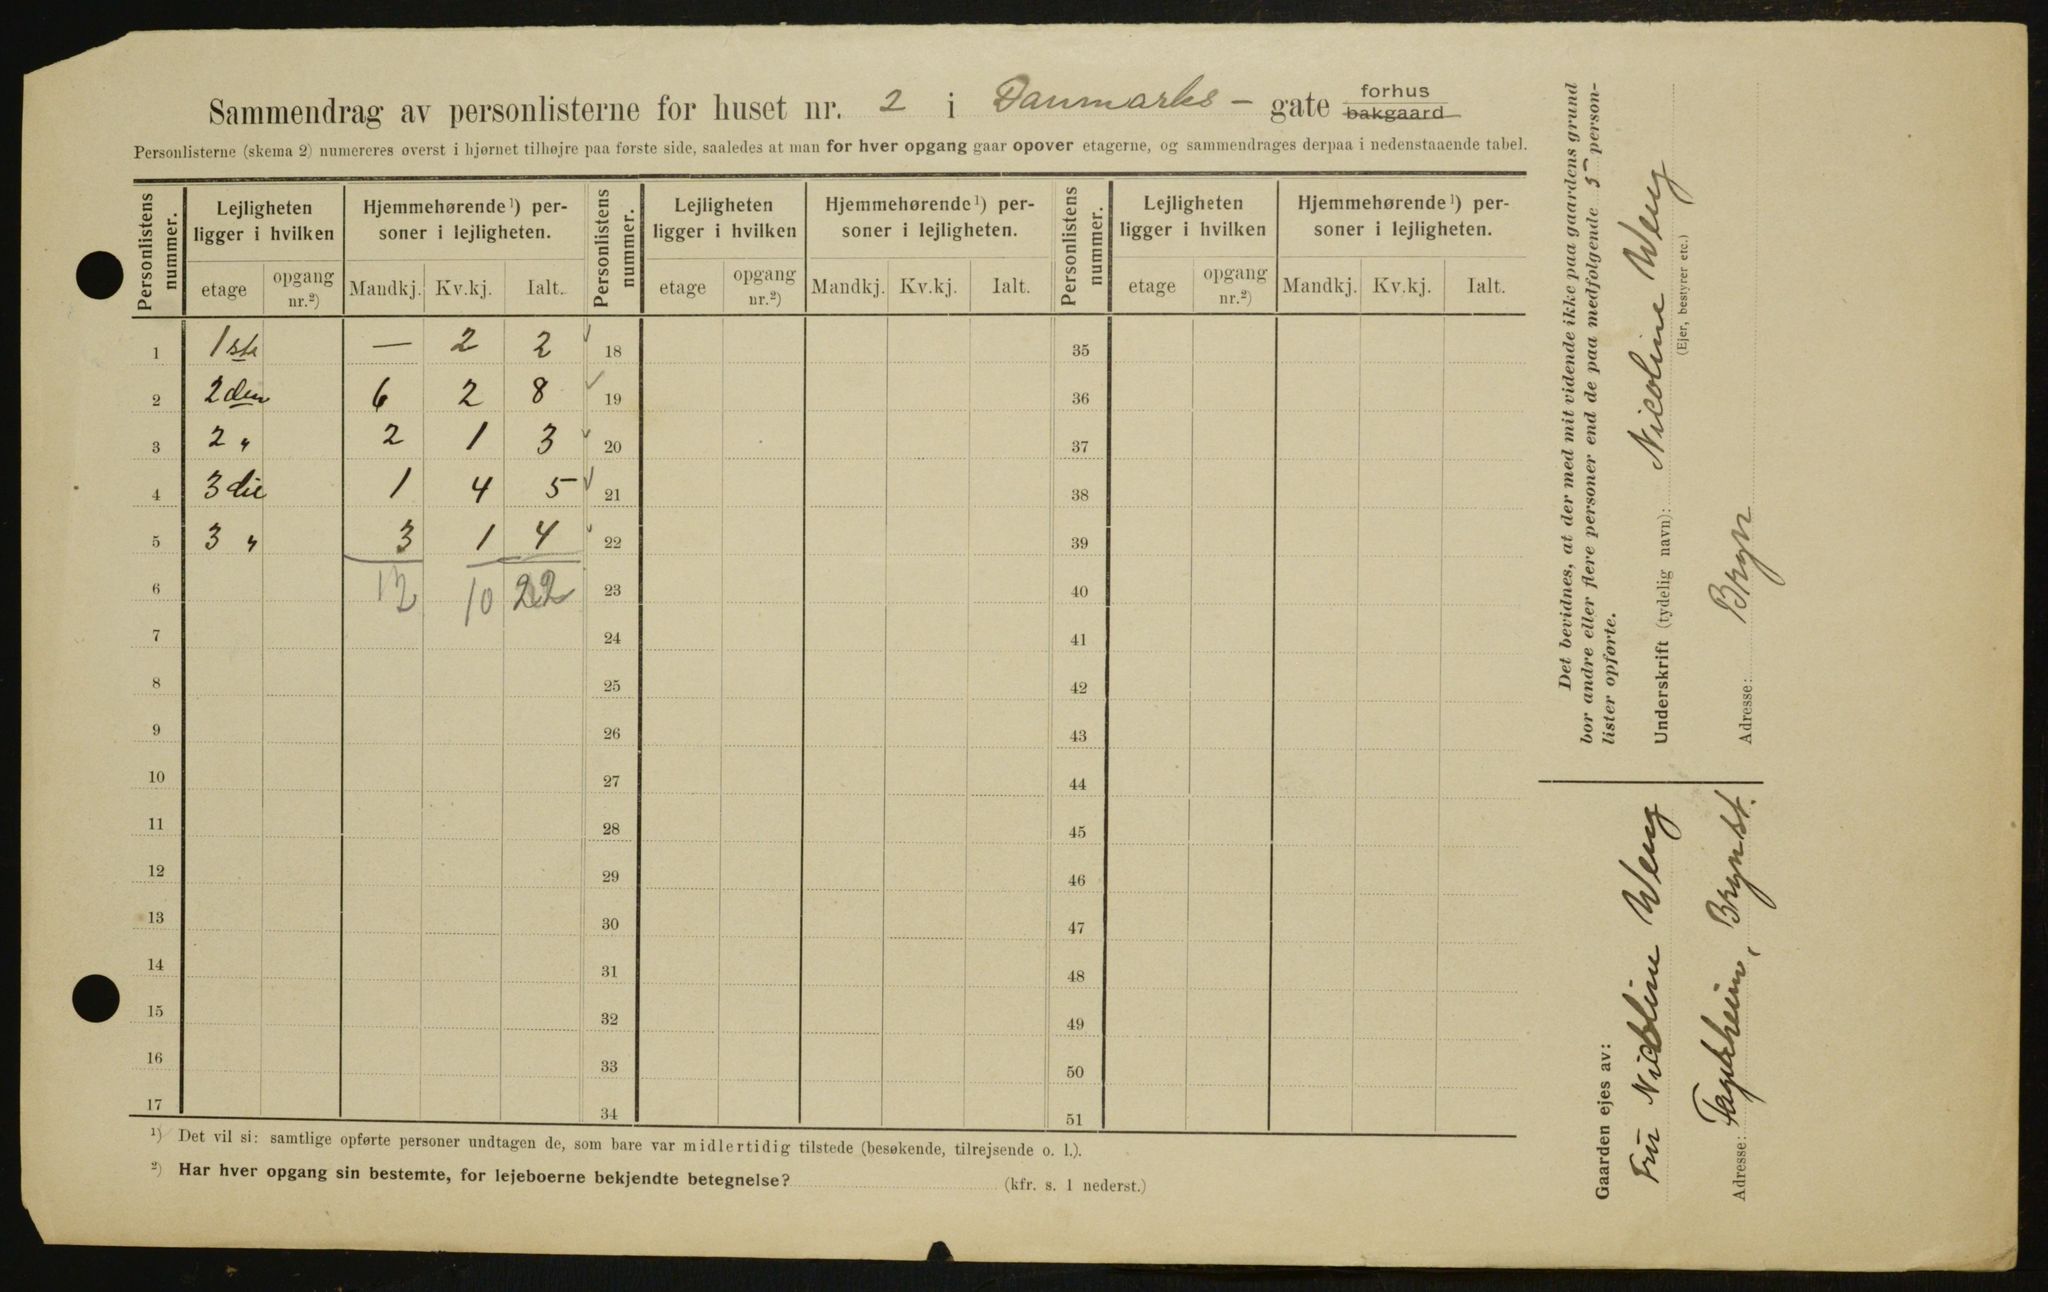 Sammendrag av personlisterne for huset nr. 2 i Danmarks - gate forhus bakgaard
Personlisterne (skema 2) numereres øverst i hjørnet tilhøjre paa første side, saaledes at man for hver opgang gaar opover etagerne, og sammendrages derpaa i nedenstaaende tabel.
Personlistens nummer. Lejligheten ligger i hvilken Hjemmehørende ¹) personer i lejligheten. Personlistens nummer. Lejligheten ligger i hvilken Hjemmehørende ¹) personer i lejligheten. Personlistens nummer. Lejligheten ligger i hvilken Hjemmehørende ¹) personer i lejligheten.
etage opgang nr.²) Mandkj. Kv.kj. Ialt. etage opgang nr.²) Mandkj. Kv.kj. Ialt. etage opgang nr.²) Mandkj. Kv.kj. Ialt.
1 1ste — 2 2 18 35
2 2den 6 2 8 19 36
3 2 " 2 1 3 20 37
4 3die 1 4 5 21 38
5 3 " 3 1 4 22 39
6 12 10 22 23 40
7 24 41
8 25 42
9 26 43
10 27 44
11 28 45
12 29 46
13 30 47
14 31 48
15 32 49
16 33 50
17 34 51
¹) Det vil si: samtlige opførte personer undtagen de, som bare var midlertidig tilstede (besøkende, tilrejsende o. l.).
²) Har hver opgang sin bestemte, for lejeboerne bekjendte betegnelse? (kfr. s. 1 nederst.)
Det bevidnes, at der med mit vidende ikke paa gaardens grund
bor andre eller flere personer end de paa medfølgende 5 person-
lister opførte.
Underskrift (tydelig navn): Nicoline Weng
(Ejer, bestyrer etc.)
Adresse: Bryn
Gaarden ejes av:
Fru Nicoline Weng
Adresse: Fagerheim, Brynst.